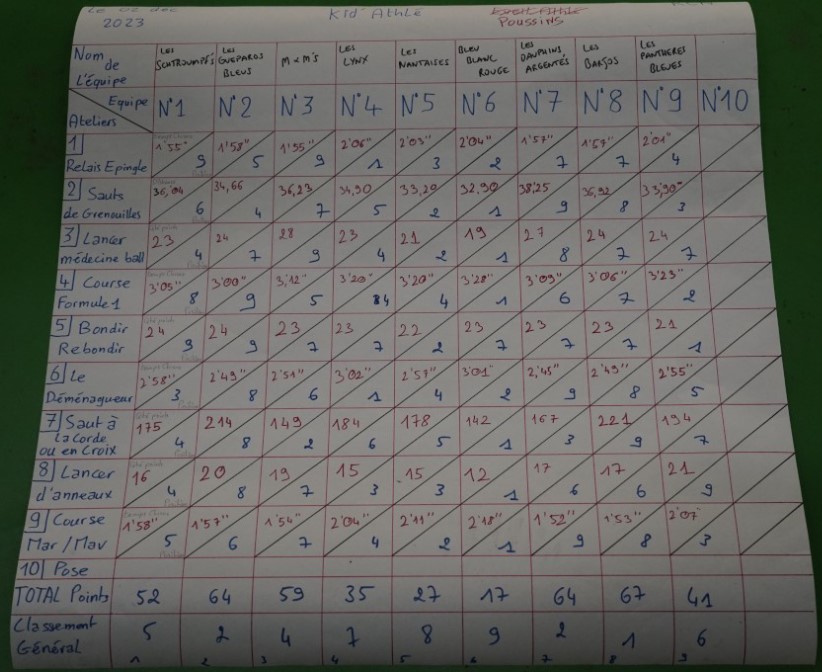 Le 02 dec
2023
Kid'Athlé
Poussins
Nom de l'équipe
LES SCHTROUMPFS
LES GUEPARDS BLEUS
M & M'S
LES LYNX
LES NANTAISES
BLEU BLANC ROUGE
LES DAUPHINS ARGENTÉS
LES BARJOS
LES PANTHERES BLEUES
Equipe Ateliers N°1 N°2 N°3 N°4 N°5 N°6 N°7 N°8 N°9 N°10
1 Relais Epingle
1'55" 1'58" 1'55" 2'06" 2'03" 2'04" 1'57" 1'57" 2'01"
9 5 9 1 3 2 7 7 4
2 Sauts de Grenouilles
36,04 34,66 36,23 34,90 33,29 32,90 38,25 36,92 33,90
6 4 7 5 2 1 9 8 3
3 Lancer médecine ball
23 24 28 23 21 19 27 24 24
4 7 9 4 2 1 8 7 7
4 Course Formule 1
3'05" 3'00" 3'12" 3'20" 3'20" 3'28" 3'09" 3'06" 3'23"
8 9 5 4 4 1 6 7 2
5 Bondir Rebondir
24 24 23 23 22 23 23 23 21
9 9 7 7 2 7 7 7 1
6 Le Déménageur
2'58" 2'49" 2'51" 3'02" 2'57" 3'01" 2'45" 2'49" 2'55"
3 8 6 1 4 2 9 8 5
7 Saut à la Corde ou en Croix
175 214 149 184 178 142 167 221 194
4 8 2 6 5 1 3 9 7
8 Lancer d'anneaux
16 20 19 15 15 12 17 17 21
4 8 7 3 3 1 6 6 9
9 Course Mar / Mav
1'58" 1'57" 1'54" 2'04" 2'11" 2'18" 1'52" 1'53" 2'07
5 6 7 4 2 1 9 8 3
10 Pose
TOTAL Points 52 64 59 35 27 17 64 67 41
Classement Général 5 2 4 7 8 9 2 1 6
1 2 3 4 5 6 7 8 9